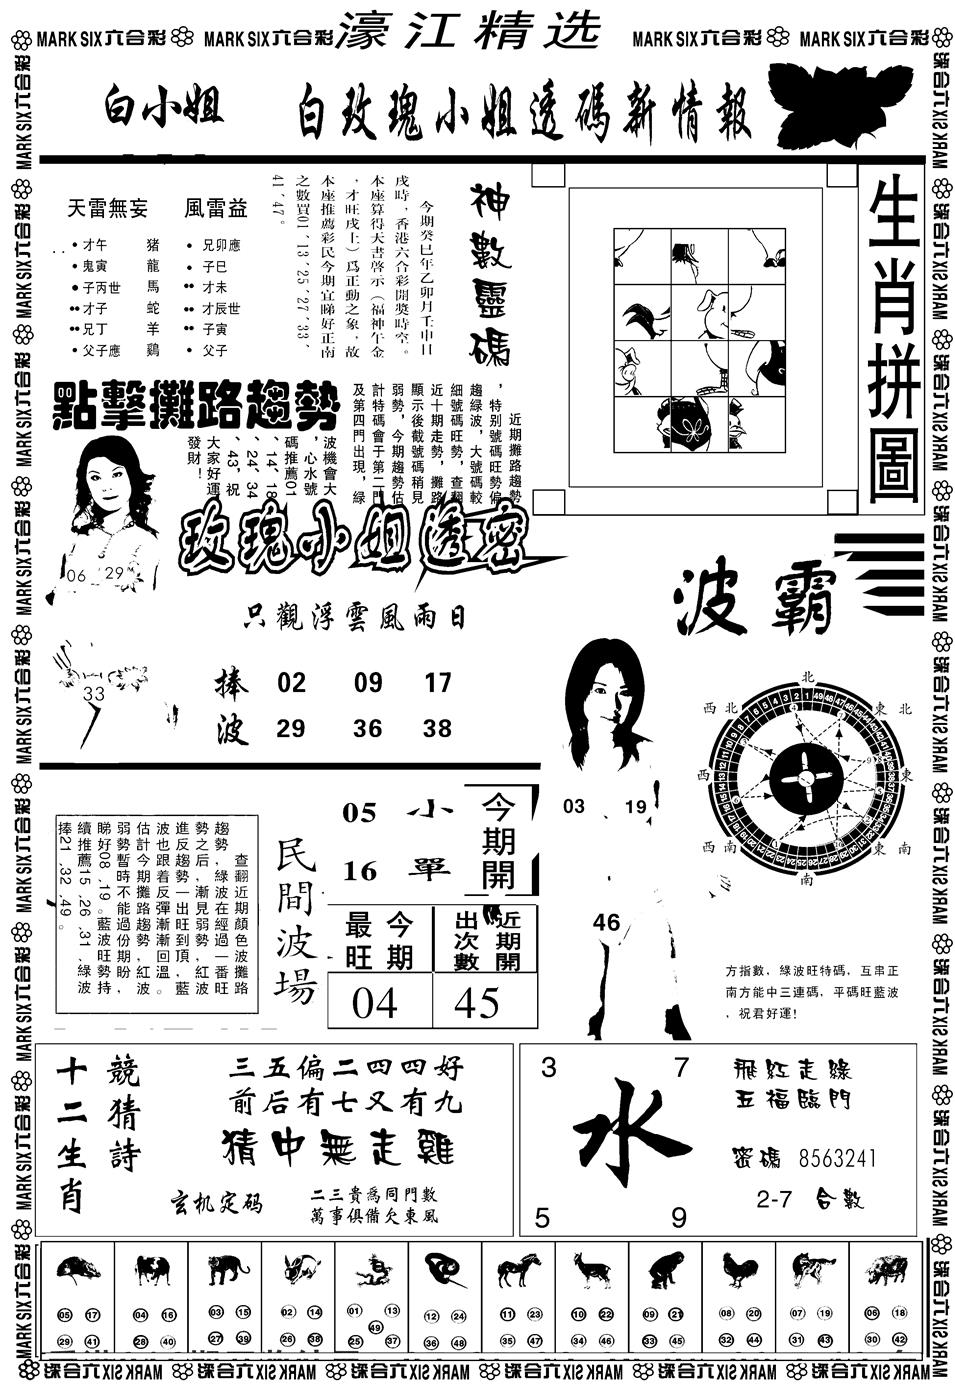 MARK SIX六合彩 MARK SIX六合彩 濠江精选 MARK SIX六合彩 MARK SIX六合彩
白小姐 白玫瑰小姐透碼新情報
天雷無妄 風雷益
才午 豬 兄卯應
鬼寅 龍 子巳
子丙世 馬 才未
才子 蛇 才辰世
兄丁 羊 子寅
父子應 鷄 父子
神數靈碼
今期癸巳年乙卯月壬申日
戌時，香港六合彩開獎時空。
本座算得天書啓示（福神午金
，才旺戌土）爲正動之象，故
本座推薦彩民今期宜睇好正南
之數買01、13、25、27、33、
41、47。
生肖拼圖
點擊攤路趨勢
近期攤路趨勢
，特別號碼旺勢偏
趨綠波，大號碼較
細號碼旺勢，查翻
近十期走勢，攤路
顯示後截號碼稍見
弱勢，今期趨勢估
計特碼會于第二門
及第四門出現，綠
波機會大
，心水號
碼推薦01
、14、18
、24、34
、43，祝
大家好運
發財！
玫瑰小姐透密
06 29
33
只觀浮雲風雨日
捧 02 09 17
波 29 36 38
波霸
北
西北 東北
西 東
西南 東南
南
03 19
46
方指數，綠波旺特碼，互串正
南方能中三連碼，平碼旺藍波
，祝君好運！
查翻近期顏色波攤路
趨勢，綠波在經過一番旺
勢之后，漸見弱勢，紅波
進反趨勢一出旺到頂，藍
波也跟着反彈漸漸回溫。
估計今期攤路趨勢，紅波
弱勢暫時不能過份期盼，
睇好08、19。藍波旺勢持
續推薦15、26、31、綠波
捧21、32、49。
民間波場
05 小
16 單
今期開
今期最旺
近期開出次數
04 45
競猜詩
十二生肖
三五偏二四四好
前后有七又有九
猜中無走雞
玄机定码
二三貴爲同門數
萬事俱備欠東風
3 7
水
5 9
飛紅走綠
五福臨門
密碼 8563241
2-7 合數
05 17 29 41
04 16 28 40
03 15 27 39
02 14 26 38
01 13 49 25 37
12 24 36 48
11 23 35 47
10 22 34 46
09 21 33 45
08 20 32 44
07 19 31 43
06 18 30 42